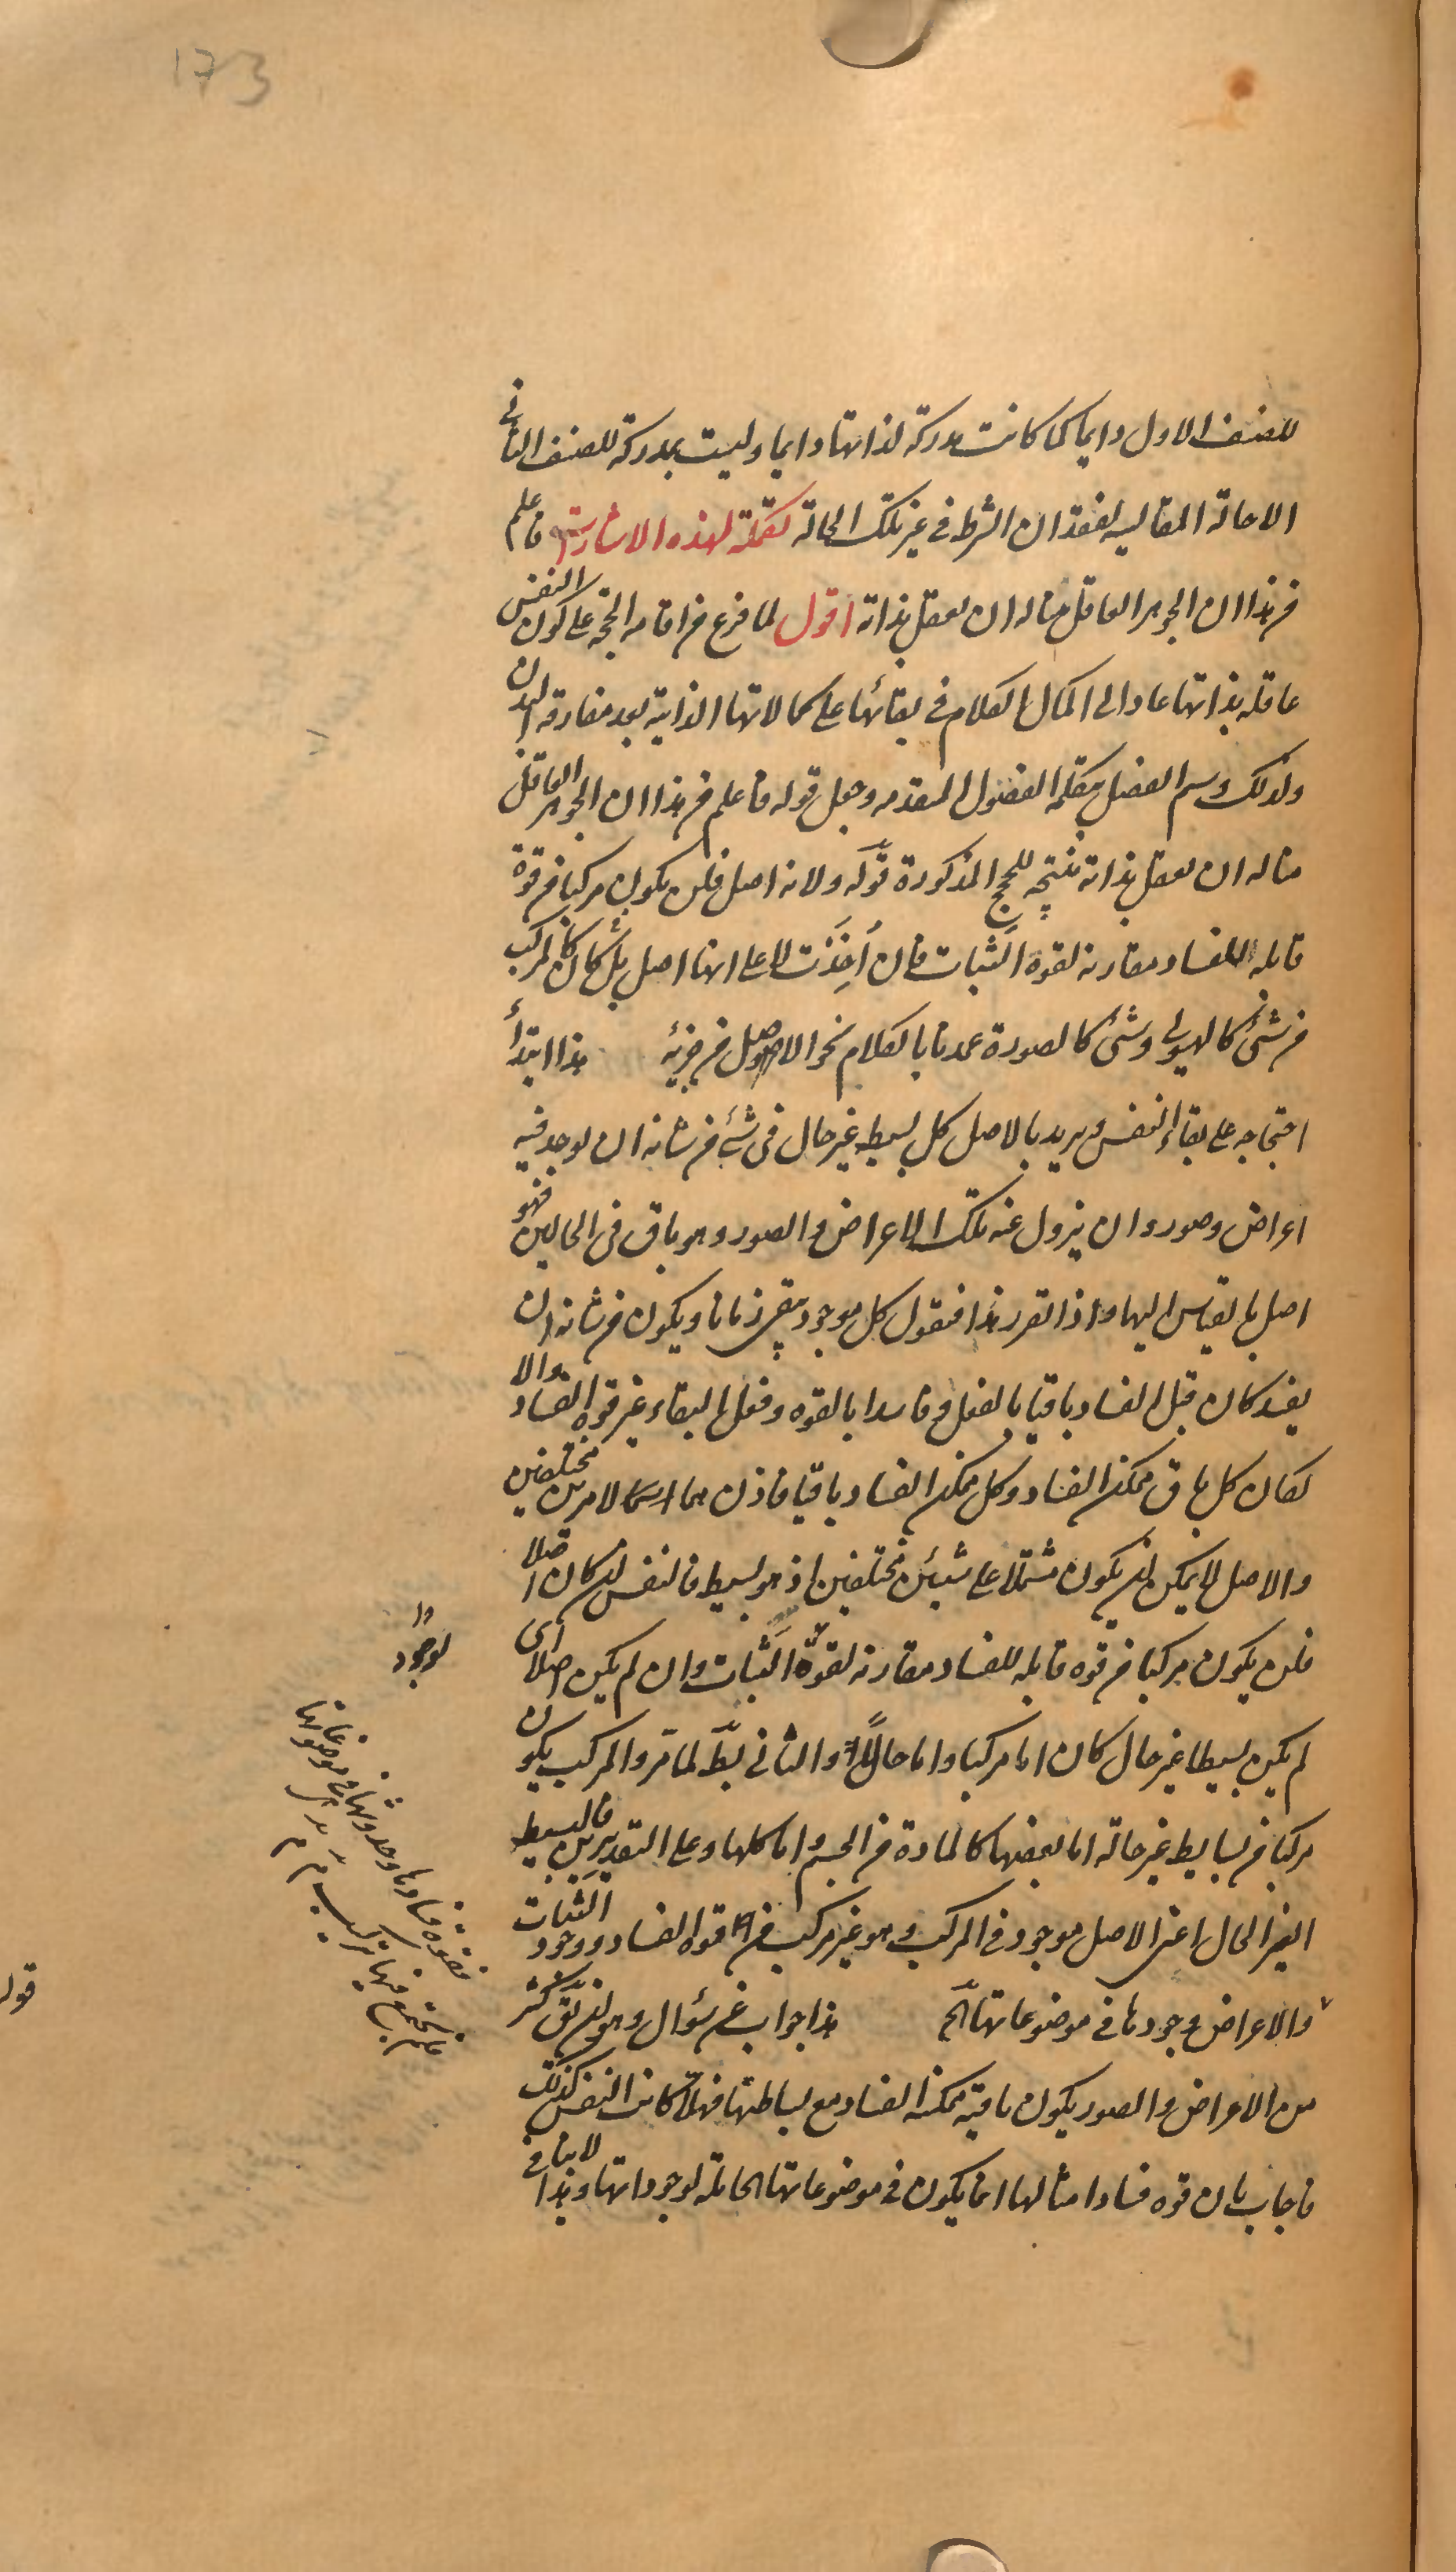 173
للصنف الاول دايما كما كانت مدركة لذاتها دايما وليست بمدركة للصنف الثانى
الا حالة المقايسه لفقدان الشرط فى غير تلك الحالة تكملة لهذه الاشارات فاعلم
من هذا ان الجوهر العاقل منا له ان يعقل بذاته اقول لما فرغ من اقامه الحجة على كون النفس
عاقله بذاتها عاد الى اكمال الكلام فى بقائها على كمالاتها الذاتية بعد مفارقه البدن
ولذلك وسم الفصل بتكملة الفصول المتقدمه وجعل قوله فاعلم من هذا ان الجوهر العاقل
منا له ان يعقل بذاته نتيجه للحجج المذكورة قوله ولانه اصل فلن يكون مركبا من قوة
قابله للفساد مقارنه لقوة الثبات فان اُخِذَت لا على انها اصل بل كان كالمركب
من شئ كالهيولى وشئ كالصورة عمدنا بالكلام نحو الاصل من جزئيه هذا ابتدأ
احتجاجه على بقاء النفس ويريد بالاصل كل بسيط غير حال فى شئ من شانه ان يوجد فيه
اعراض وصور وان يزول عنه تلك الاعراض والصور وهو باق فى الحالين فهو
اصل بالقياس اليها واذا تقرر هذا فنقول كل موجود يبقى زمانا ويكون من شانه ان
يفسد كان قبل الفساد باقيا بالفعل وفاسدا بالقوه وفعل البقاء غير قوه الفساد والا
لكان كل باق ممكن الفساد وكل ممكن الفساد باقيا فاذن هما لامرين مختلفين
والاصل لا يمكن ان يكون مشتملا على شيئين مختلفين اذ هو بسيط فالنفس ان كان اصلا
فلن يكون مركبا من قوه قابله للفساد مقارنه لقوة الثبات وان لم يكن اصلا اى
لم يكن بسيطا غير حال كان اما مركبا واما حالاً والثانى بط لما مر والمركب يكون
مركبا من بسايط غير حالة اما بعضها كالمادة من الجسم واما كلها وعلى التقديرين فالبسيط
الغير الحال اعنى الاصل موجود فى المركب وهو غير مركب من قوه الفساد ووجود الثبات
والاعراض وجودها فى موضوعاتها الخ هذا جواب عن سؤال وهو ان يقال كثير
من الاعراض والصور يكون باقية ممكنه الفساد مع بساطتها فهلا كانت النفس كذلك
فاجاب بان قوه فساد امثالها انما يكون فى موضوعاتها الحاملة لوجوداتها وهذا لا ينافى
لوجود
فقوة فسادها وحدوثها فى موضوعاتها
فلم يجتمع فيها تركيب
قوله